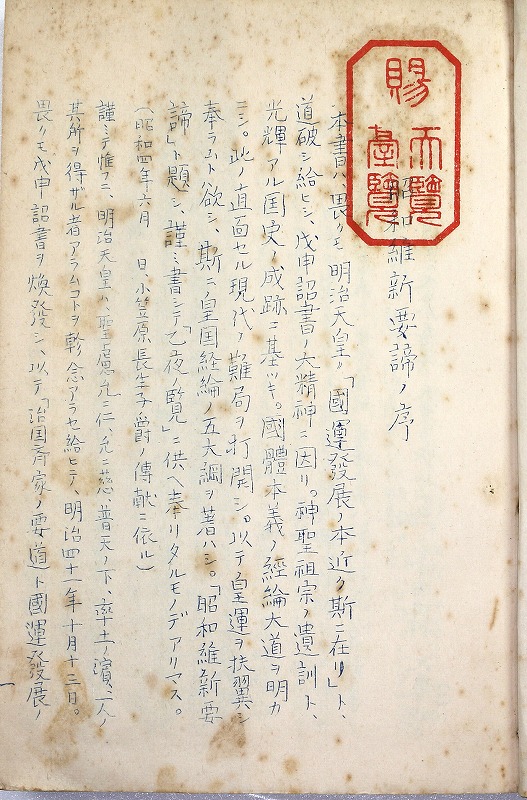 賜
天覽
臺覽
昭和維新要諦ノ序
本書ハ、畏クモ明治天皇ノ「國運發展ノ本近ク斯ニ在リ」ト、
道破シ給ヒシ、戊申詔書ノ大精神ニ因リ。神聖祖宗ノ遺訓ト、
光輝アル国史ノ成跡ニ基ツキ。國體本義ノ経綸大道ヲ明カ
ニシ。此ノ直面セル現代ノ難局ヲ打開シ。以テ皇運ヲ扶翼シ
奉ラムト欲シ、斯ニ皇国経綸ノ五大綱ヲ著ハシ。「昭和維新要
諦」ト題シ、謹ミ書シテ「乙夜ノ覽」ニ供ヘ奉リタルモノデアリマス。
(昭和四年六月 日、小笠原長生子爵ノ傳献ニ依ル)
謹ミテ惟フニ、明治天皇ハ、聖慮允ニ仁、允ニ慈、普天ノ下、率土ノ濱、一人ノ
其所ヲ得ザル者アラムコトヲ軫念アラセ給ヒテ、明治四十一年十月十三日。
畏クモ戊申詔書ヲ煥發シ、以テ「治国斉家ノ要道ト國運發展ノ